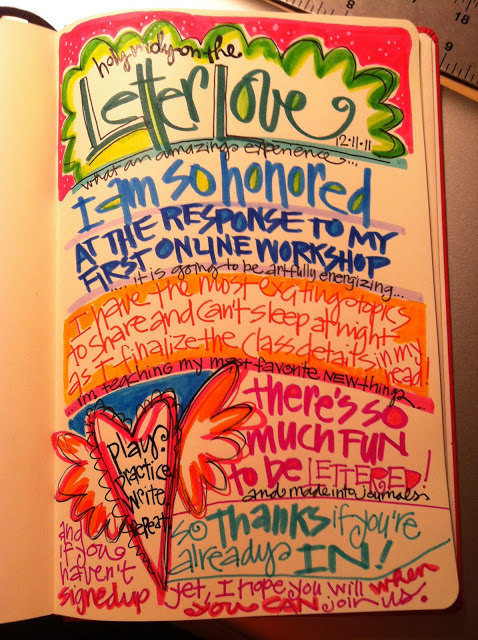 holy moly on the
Letter Love
12.11.11
what an amazing experience...
I am so honored
AT THE RESPONSE TO MY
FIRST ONLINE WORKSHOP
.... it is going to be artfully energizing...
I have the most exciting topics
to share and can't sleep at night
as I finalize the class details in my head!
... i'm teaching my most favorite NEW things...
there's so
much FUN
to be LETTERED!
and made into journals
play
practice
write
repeat
so THANKS if you're
already IN!
and
if you
haven't
signed up
yet, I hope you will when
you CAN join us!
18
8
9